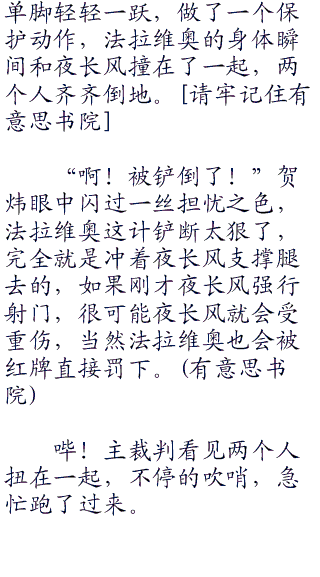 单脚轻轻一跃，做了一个保
护动作，法拉维奥的身体瞬
间和夜长风撞在了一起，两
个人齐齐倒地。[请牢记住有
意思书院]
“啊！被铲倒了！”贺
炜眼中闪过一丝担忧之色，
法拉维奥这计铲断太狠了，
完全就是冲着夜长风支撑腿
去的，如果刚才夜长风强行
射门，很可能夜长风就会受
重伤，当然法拉维奥也会被
红牌直接罚下。(有意思书
院)
哔！主裁判看见两个人
扭在一起，不停的吹哨，急
忙跑了过来。